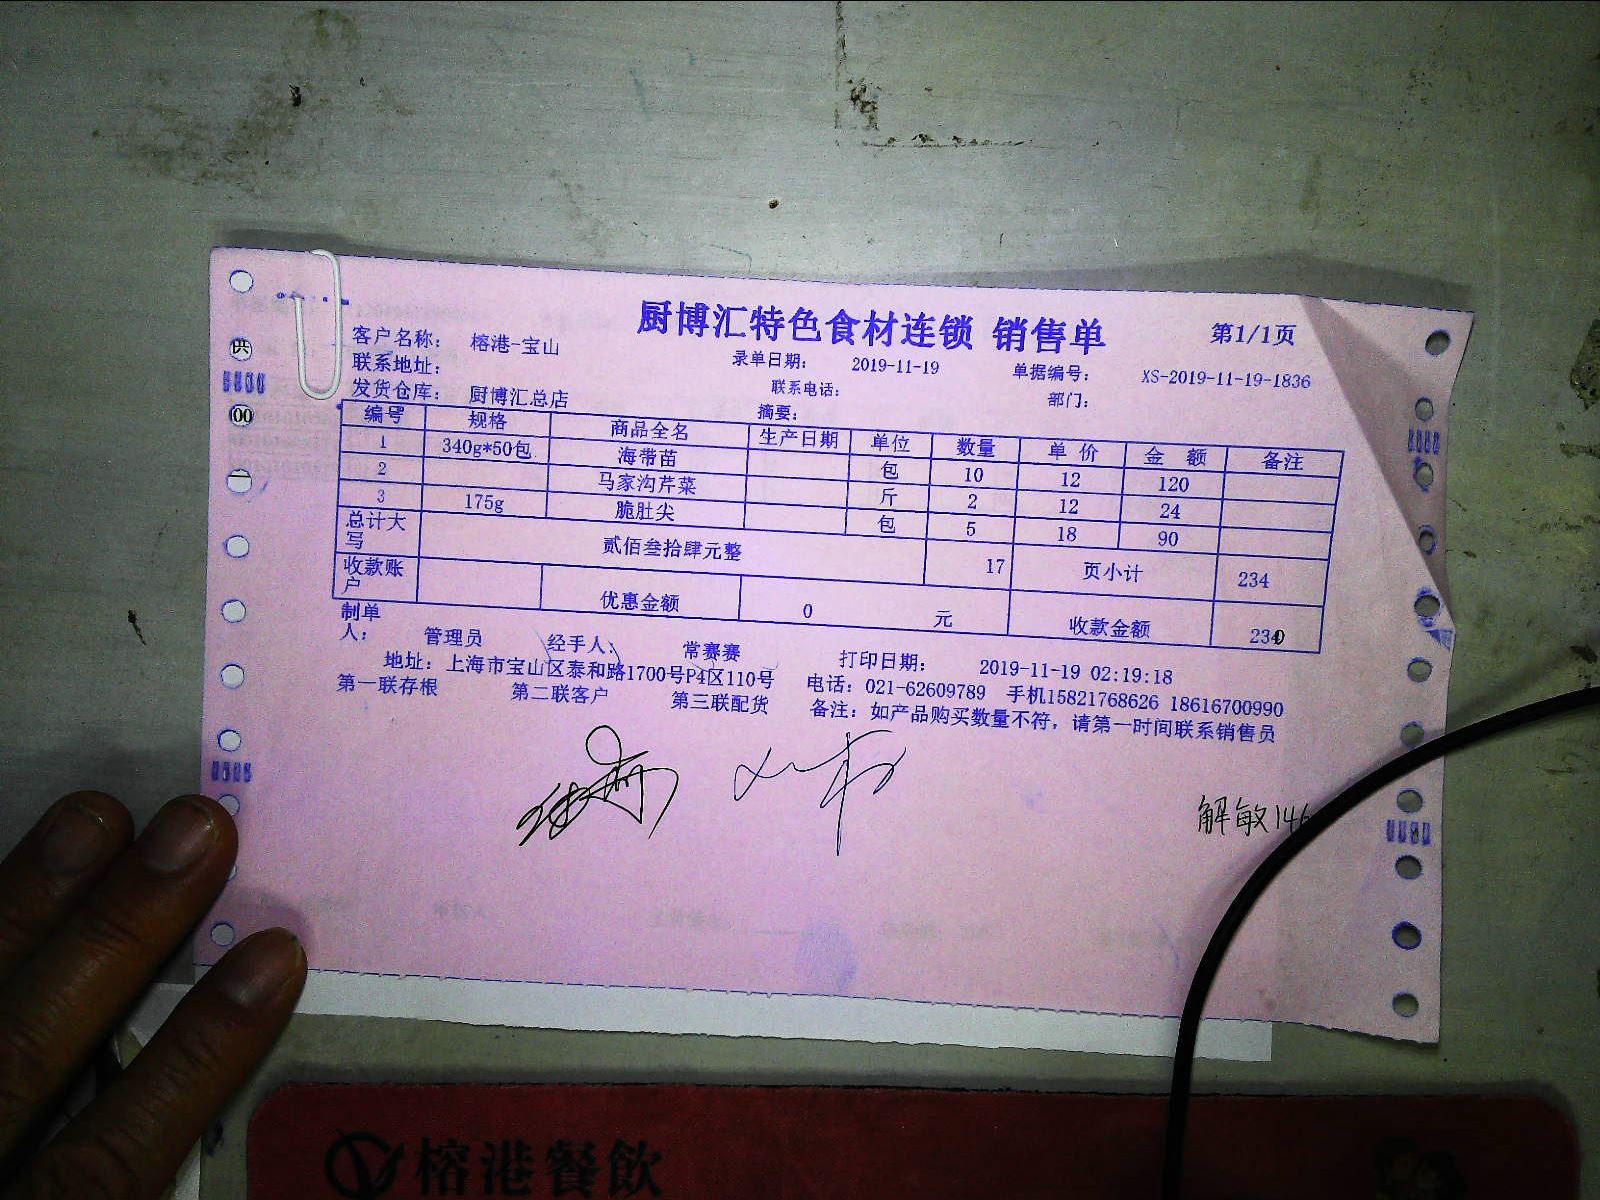 厨博汇特色食材连锁 销售单 第1/1页
客户名称: 榕港-宝山 录单日期: 2019-11-19 单据编号: XS-2019-11-19-1836
联系地址: 联系电话: 部门:
发货仓库: 厨博汇总店 摘要:
编号 规格 商品全名 生产日期 单位 数量 单价 金额 备注
1 340g*50包 海带苗 包 10 12 120
2 马家沟芹菜 斤 2 12 24
3 175g 脆肚尖 包 5 18 90
总计大写 贰佰叁拾肆元整 17 页小计 234
收款账户 优惠金额 0 元 收款金额
制单人: 管理员 经手人: 常赛赛 打印日期: 2019-11-19 02:19:18
地址: 上海市宝山区泰和路1700号P4区110号 电话: 021-62609789 手机15821768626 18616700990
第一联存根 第二联客户 第三联配货 备注: 如产品购买数量不符, 请第一时间联系销售员
解敏146
供
00
一
榕港餐飲